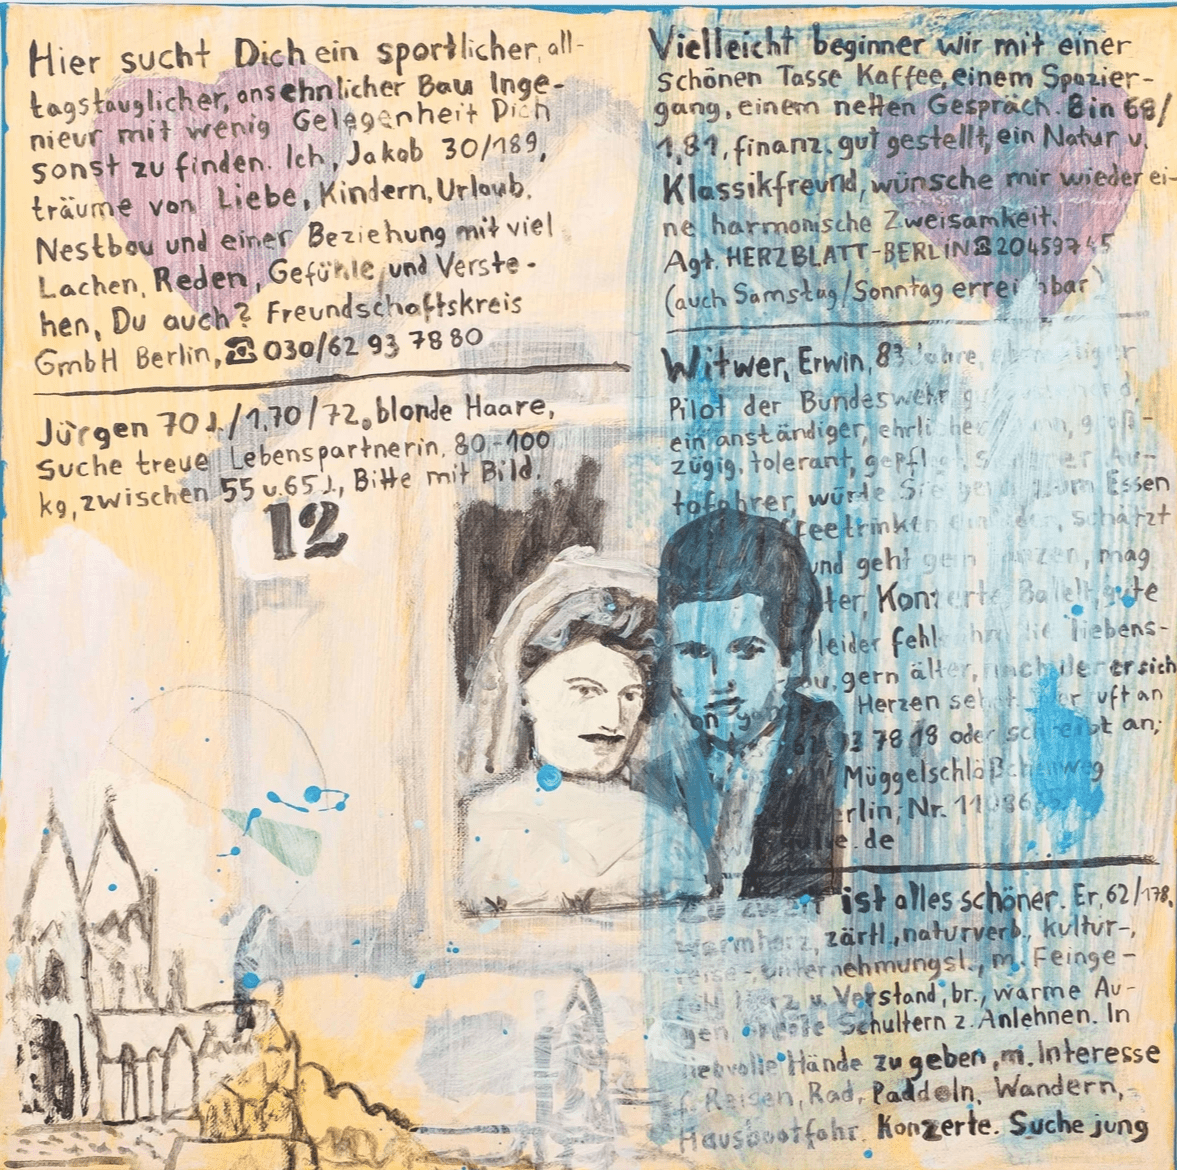 Hier sucht Dich ein sportlicher, all-
tagstauglicher, ansehnlicher Bau Inge-
nieur mit wenig Gelegenheit Dich
sonst zu finden. Ich, Jakob 30/189,
träume von Liebe, Kindern, Urlaub,
Nestbau und einer Beziehung mit viel
Lachen, Reden, Gefühle und Verste-
hen, Du auch? Freundschaftskreis
GmbH Berlin, ☎ 030/62 93 78 80
Jürgen 70 J./1,70/72, blonde Haare,
suche treue Lebenspartnerin, 80-100
kg, zwischen 55 u. 65 J., Bitte mit Bild.
12
Vielleicht beginner wir mit einer
schönen Tasse Kaffee, einem Spazier-
gang, einem netten Gespräch. Bin 68/
1,81, finanz. gut gestellt, ein Natur u.
Klassikfreund, wünsche mir wieder ei-
ne harmonische Zweisamkeit.
Agt. HERZBLATT-BERLIN ☎ 20459745
(auch Samstag/Sonntag erreichbar)
Witwer, Erwin, 83 Jahre, ehemaliger
Pilot der Bundeswehr
ein anständiger, ehrlicher groß-
zügig, tolerant, gepfl Au-
tofahrer, würde Sie gern zum Essen
ffeetrinken schätzt
und geht gern tanzen, mag
ter, Konzerte Ballett, gute
leider fehl ihm die liebens-
gern älter, nach der er sich
Herzen seh uft an
93 78 18 oder schreibt an;
Müggelschlößchenweg
erlin, Nr.
.de
Zu zweit ist alles schöner. Er, 62/178,
warmherz, zärtl., naturverb., kultur-,
reise-, unternehmungsl., m. Feinge-
fühl Herz u. Verstand, br., warme Au-
gen, Schultern z. Anlehnen. In
liebvolle Hände zu geben, m. Interesse
f. Reisen, Rad, Paddeln, Wandern,
Hausbootfahr. Konzerte. Suche jung